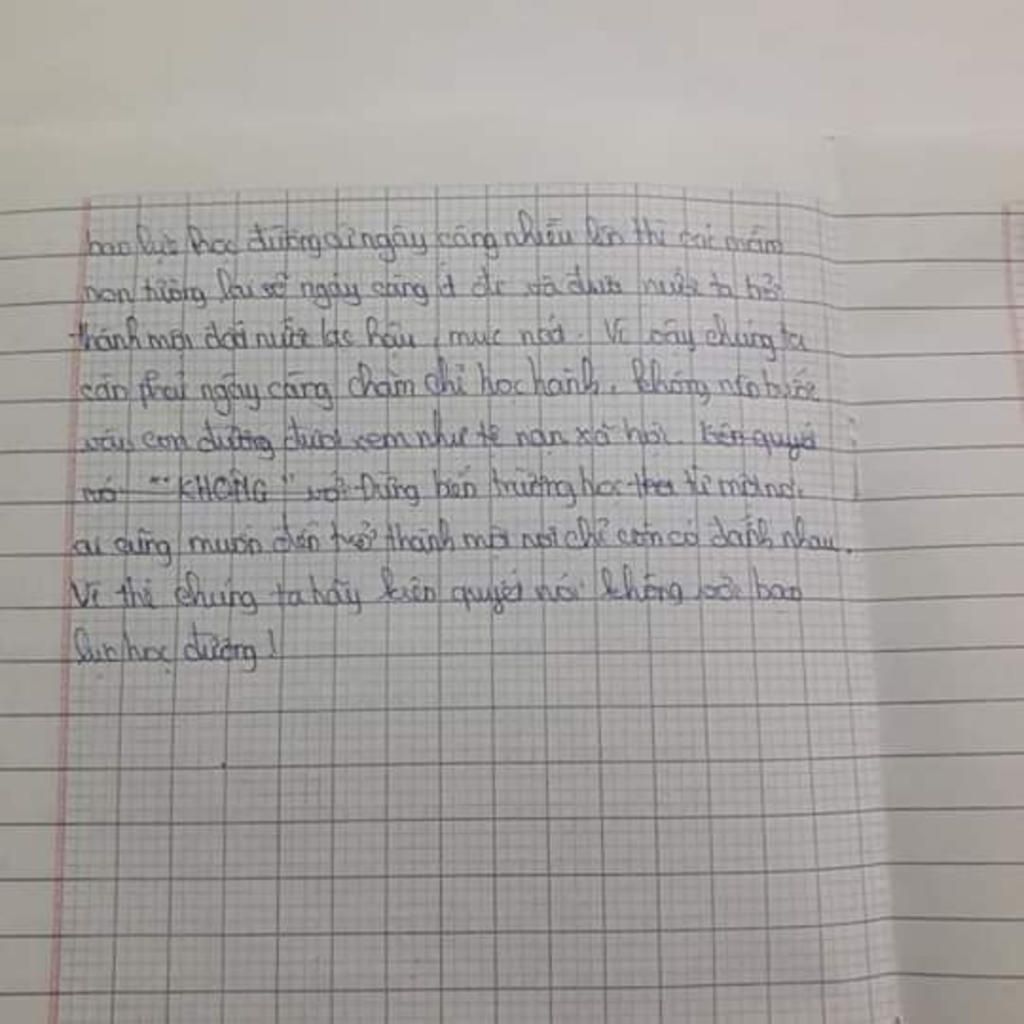 bạo lực học đường cứ ngày càng nhiều lên thì cái mầm
non tương lai sẽ ngày càng ít đi và đưa nước ta trở
thành một đất nước lạc hậu, mục nát. Vì vậy chúng ta
cần phải ngày càng chăm chỉ học hành, không nên bước
vào con đường được xem như tệ nạn xã hội. kiên quyết
nói "KHÔNG" với Đừng biến trường học từ một nơi
ai cũng muốn đến trở thành một nơi chỉ còn có đánh nhau.
Vì thế chúng ta hãy kiên quyết nói không với bạo
lực học đường!